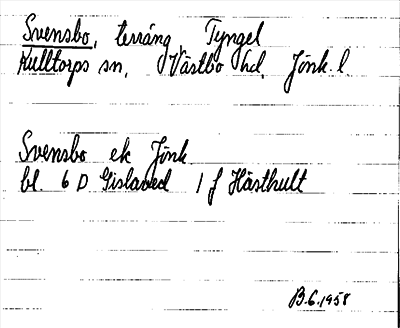 Svensbo, terräng Tyngel
Kulltorps sn, Västbo hd, Jönk. l.
Svensbo ek Jönk
bl. 6 D Gislaved 1 f Hästhult
B.6.1958